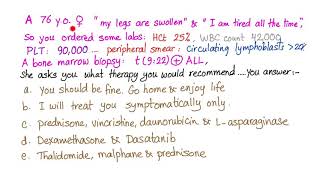 A 76 y.o. ♀ "my legs are swollen" & "I am tired all the time",
So you ordered some labs: Hct 25%, WBC count 42,000
PLT: 90,000 .... peripheral smear: Circulating lymphoblasts > 20%
A bone marrow biopsy: t(9:22) ⊕ ALL,
She asks you what therapy you would recommend .... You answer:-
a. you should be fine. Go home & enjoy life
b. I will treat you symptomatically only
c. prednisone, vincristine, daunorubicin & L-asparaginase
d. Dexamethasone & Dasatanib
e. Thalidomide, malphane & prednisone